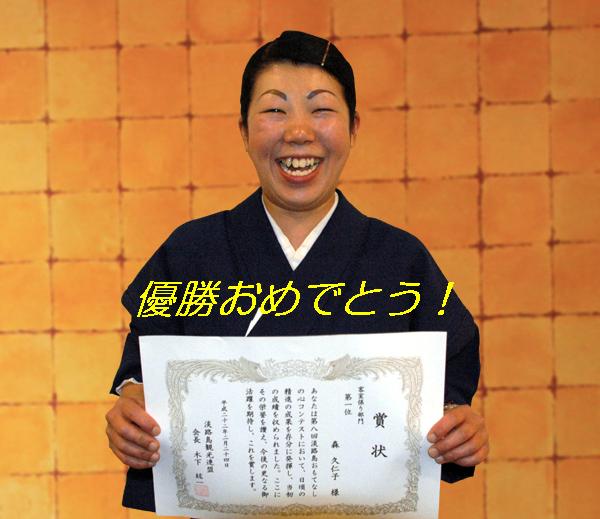 優勝おめでとう！
賞状
客室係り部門
第一位
森 久仁子 様
あなたは第八回淡路島おもてなし
の心コンテストにおいて、日頃の
精進の成果を存分に発揮し、当初
の成績を収められました。ここに
その栄誉を讃え、今後の更なる御
活躍を期待し、これを賞します。
平成二十二年二月二十四日
淡路島観光連盟
会長 木下 紘一